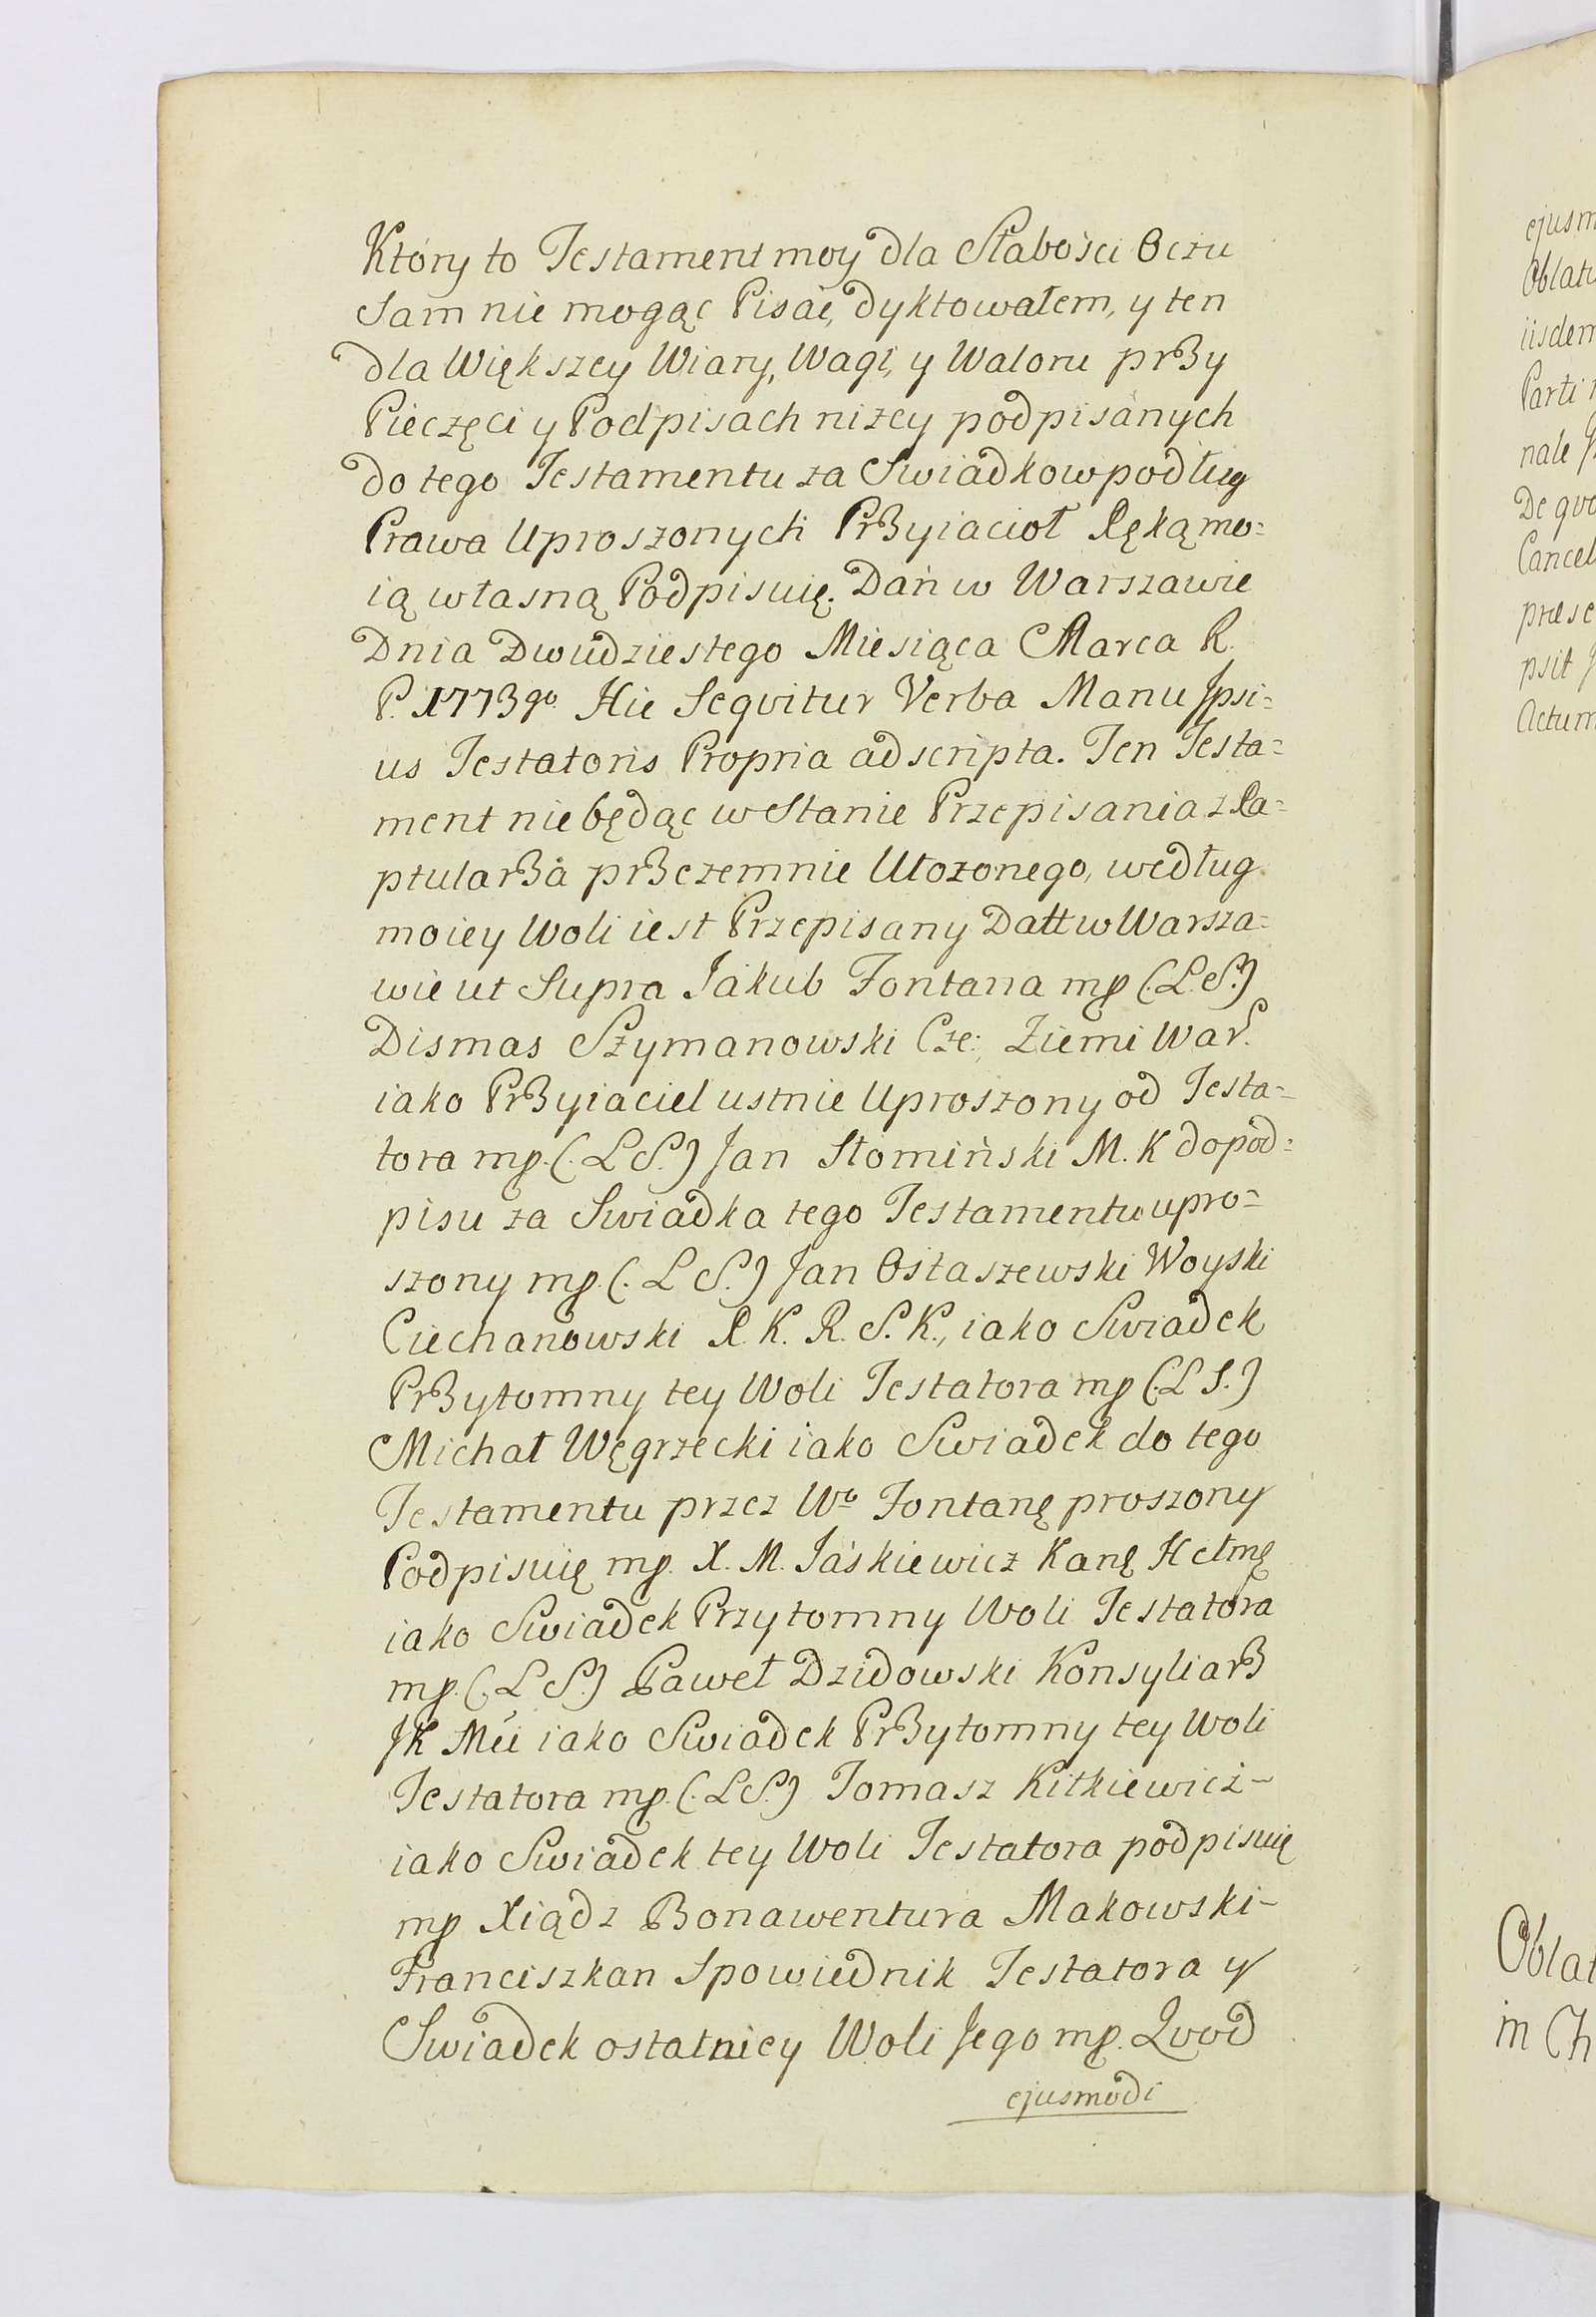 Ktory to Testament moy dla Słabości Oczu
Sam nie mogąc Pisać, dyktowałem, y ten
dla Większey Wiary, Wagi, y Waloru przy
Pieczęci y Podpisach niżey podpisanych
do tego Testamentu za Swiadkow podług
Prawa Uproszonych Przyiacioł Ręką mo=
ią własną Podpisuię. Dań w Warszawie
Dnia Dwudziestego Miesiąca Marca R.
P. 1773go. Hic Seqvitur Verba Manu Ipsi=
us Testatoris Propria adscripta. Ten Testa=
ment nie będąc w Stanie Przepisania z Ra=
ptularza przezemnie Ułożonego, według
moiey Woli iest Przepisany Datt w Warsza=
wie ut Supra Jakub Fontana mp (.L.S.)
Dismas Szymanowski Cze: Ziemi War.
iako Przyiaciel ustnie Uproszony od Testa=
tora mp. (.L S.) Jan Słomiński M. K do pod=
pisu za Swiadka tego Testamentu upro=
szony mp. (. L S.) Jan Ostaszewski Woyski
Ciechanowski R. K. R. S. K., iako Swiadek
Przytomny tey Woli Testatora mp (.L S.)
Michał Węgrzecki iako Swiadek do tego
Testamentu przez Wo Fontanę proszony
Podpisuię mp. X. M. Jaśkiewicz Kanę Hełmę
iako Swiadek Przytomny Woli Testatora
mp. (.L S.) Paweł Dzidowski Konsyliarz
JK Mći iako Swiadek Przytomny tey Woli
Testatora mp. (.L S.) Tomasz Kitkiewicz-
iako Swiadek tey Woli Testatora podpisuię
mp Xiądz Bonawentura Makowski-
Franciszkan Spowiednik Testatora y
Swiadek ostatniey Woli Jego mp. Qvod
ejusmodi
ejusm
Oblat
iisdem
Parti
nale
De qvo
Cancel
præse
psit
Actum
Oblat
in Ch